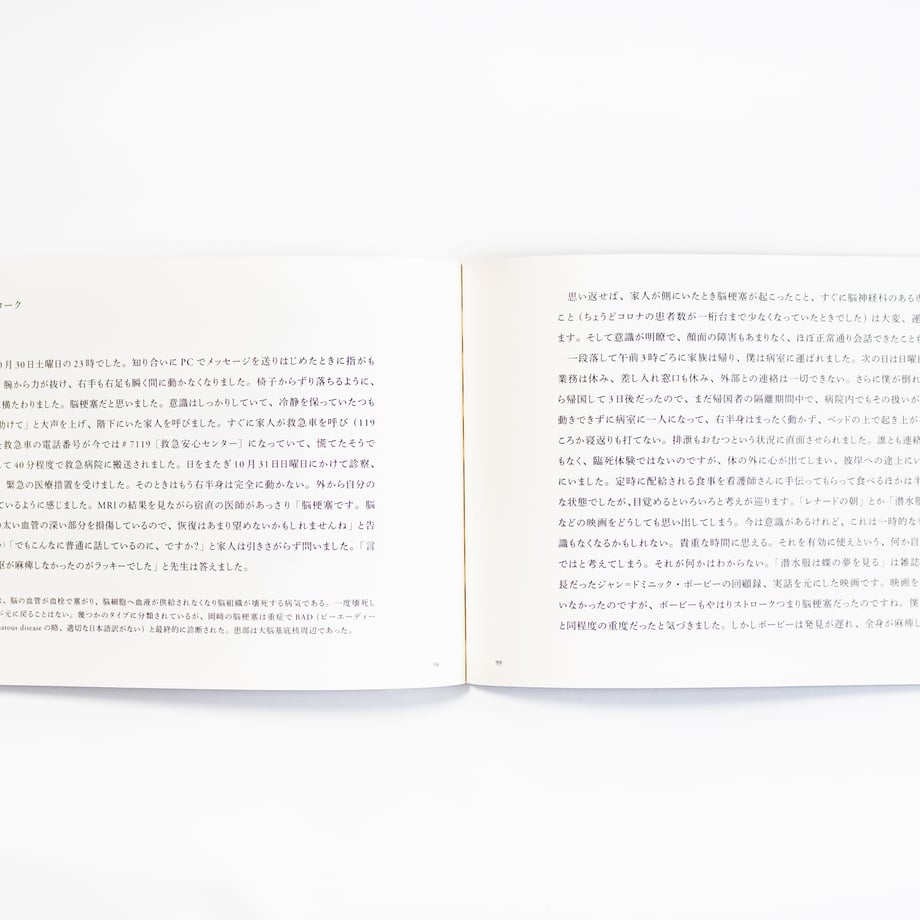 ローク
0月30日土曜日の23時でした。知り合いに PC でメッセージを送りはじめたときに指がも
腕から力が抜け、右手も右足も瞬く間に動かなくなりました。椅子からずり落ちるように、
横たわりました。脳梗塞だと思いました。意識はしっかりしていて、冷静を保っていたつも
助けて」と大声を上げ、階下にいた家人を呼びました。すぐに家人が救急車を呼び（119
救急車の電話番号が今では#7119［救急安心センター］になっていて、慌てたそうで
して40分程度で救急病院に搬送されました。日をまたぎ10月31日日曜日にかけて診察、
緊急の医療措置を受けました。そのときはもう右半身は完全に動かない。外から自分の
ているように感じました。MRIの結果を見ながら宿直の医師があっさり「脳梗塞です。脳
の太い血管の深い部分を損傷しているので、恢復はあまり望めないかもしれませんね」と告
「でもこんなに普通に話しているのに、ですか?」と家人は引きさがらず問いました。「言
枢が麻痺しなかったのがラッキーでした」と先生は答えました。
は、脳の血管が血栓で塞がり、脳細胞へ血液が供給されなくなり脳組織が壊死する病気である。一度壊死し
が元に戻ることはない。幾つかのタイプに分類されているが、岡﨑の脳梗塞は重症で BAD（ビーエーディー
matous disease の略、適切な日本語訳がない）と最終的に診断された。患部は大脳基底核周辺であった。
98
思い返せば、家人が側にいたとき脳梗塞が起こったこと、すぐに脳神経科のある
こと（ちょうどコロナの患者数が一桁台まで少なくなっていたときでした）は大変、運
ます。そして意識が明瞭で、顔面の障害もあまりなく、ほぼ正常通り会話できたこと
一段落して午前3時ごろに家族は帰り、僕は病室に運ばれました。次の日は日曜日
業務は休み、差し入れ窓口も休み、外部との連絡は一切できない。さらに僕が倒れ
ら帰国して3日後だったので、まだ帰国者の隔離期間中で、病院内でもその扱いが
動きできずに病室に一人になって、右半身はまったく動かず、ベッドの上で起き上が
ころか寝返りも打てない。排泄もおむつという状況に直面させられました。誰とも連絡
もなく、臨死体験ではないのですが、体の外に心が出てしまい、彼岸への途上にい
にいました。定時に配給される食事を看護師さんに手伝ってもらって食べるほかは半
な状態でしたが、目覚めるといろいろと考えが巡ります。「レナードの朝」とか「潜水服
などの映画をどうしても思い出してしまう。今は意識があるけれど、これは一時的な
識もなくなるかもしれない。貴重な時間に思える。それを有効に使えという、何か自
ではと考えてしまう。それが何かはわからない。「潜水服は蝶の夢を見る」は雑誌
長だったジャン=ドミニック・ボービーの回顧録、実話を元にした映画です。映画を
いなかったのですが、ボービーもやはりストロークつまり脳梗塞だったのですね。僕
と同程度の重度だったと気づきました。しかしボービーは発見が遅れ、全身が麻痺し
99